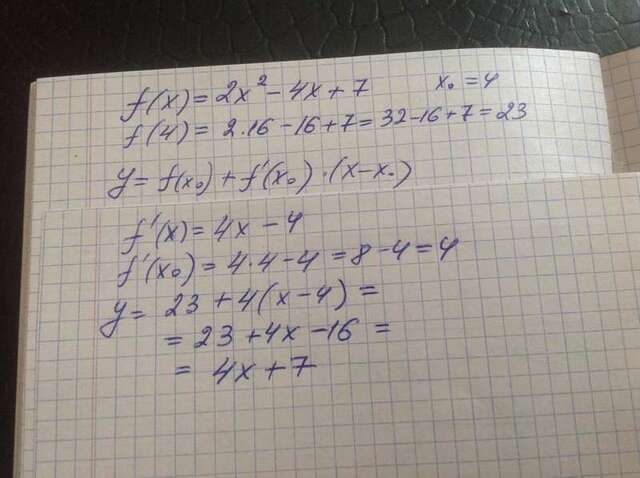 f(x) = 2x² - 4x + 7 x₀ = 4
f(4) = 2·16 - 16 + 7 = 32 - 16 + 7 = 23
y = f(x₀) + f'(x₀)·(x - x₀)
f'(x) = 4x - 4
f'(x₀) = 4·4 - 4 = 8 - 4 = 4
y = 23 + 4(x - 4) =
= 23 + 4x - 16 =
= 4x + 7